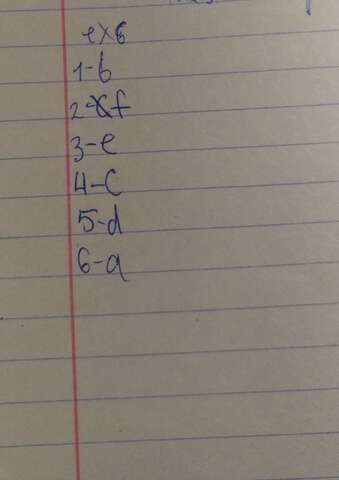 ex6
1-b
2-f
3-e
4-c
5-d
6-a